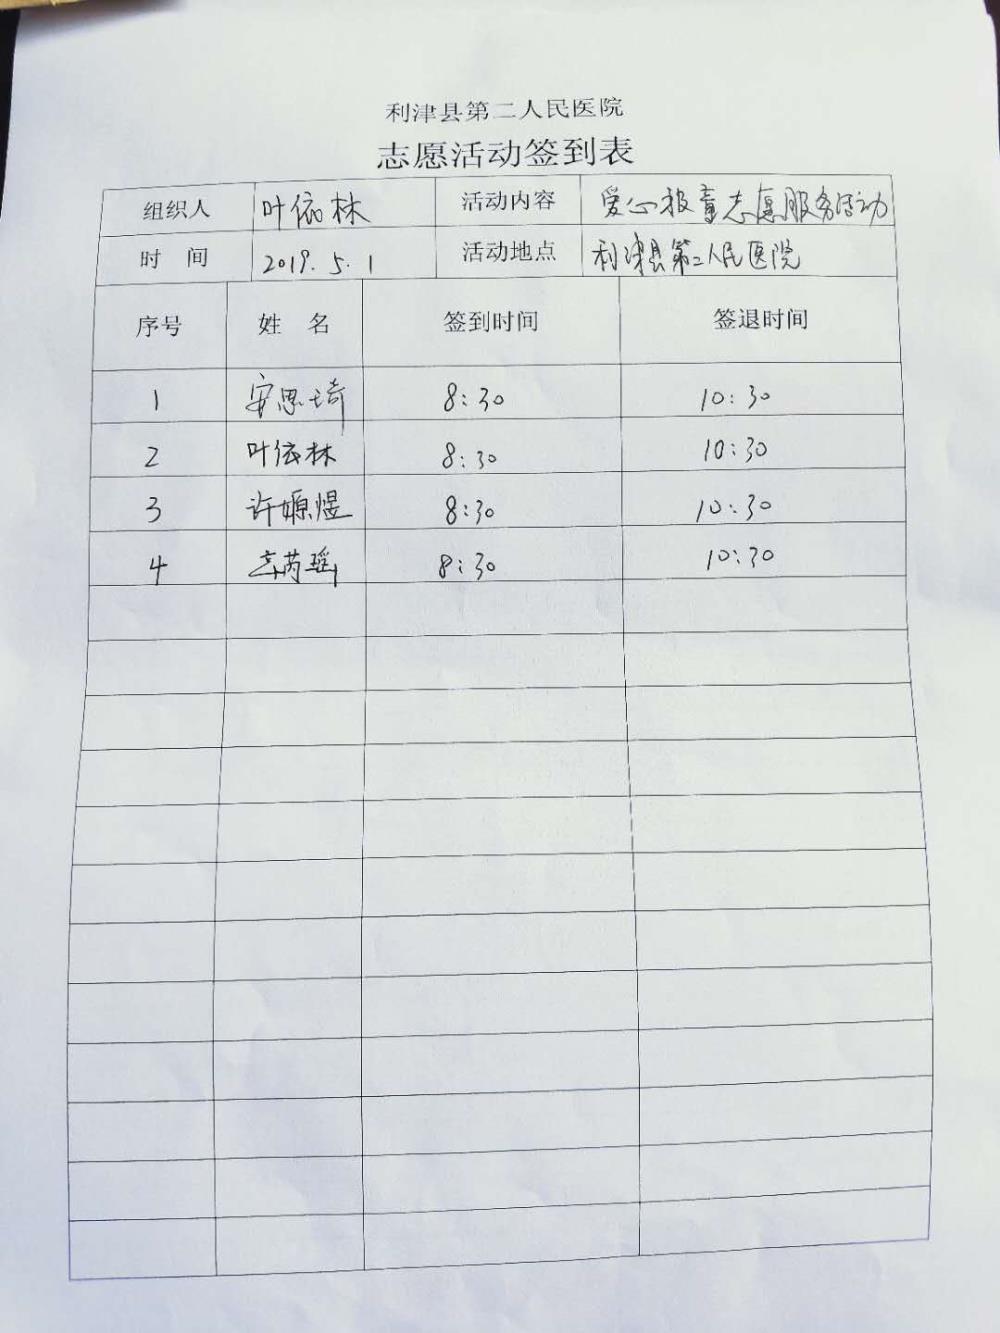 利津县第二人民医院
志愿活动签到表
组织人 叶依林 活动内容 爱心报童志愿服务活动
时 间 2019.5.1 活动地点 利津县第二人民医院
序号 姓 名 签到时间 签退时间
1 安思琦 8:30 10:30
2 叶依林 8:30 10:30
3 许嫄煜 8:30 10:30
4 芮瑶 8:30 10:30